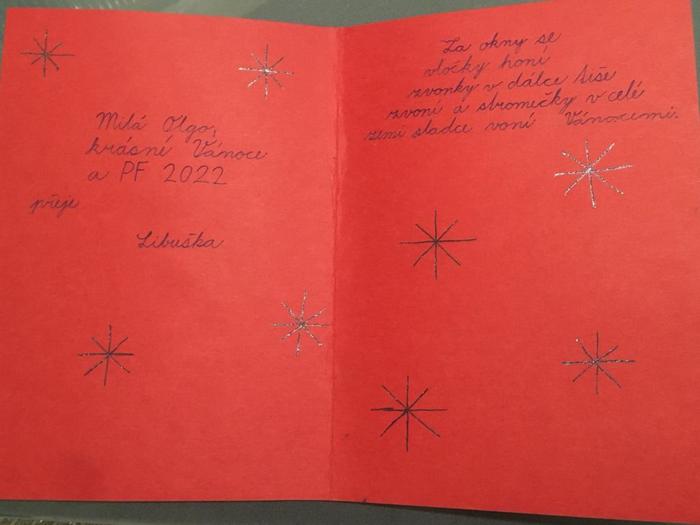 Milá Olgo,
krásné Vánoce
a PF 2022
přeje
Libuška
Za okny se
vločky honí
zvonky v dálce tiše
zvoní a stromečky v celé
zemi sladce voní Vánocemi.